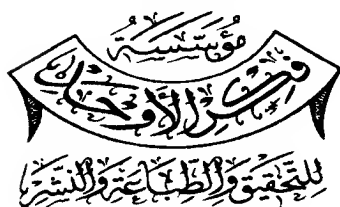 مُؤَسَّسَة
فِكْر الأَوْحَد
لِلتَّحْقِيقِ وَالطِّبَاعَةِ وَالنَّشْرِ